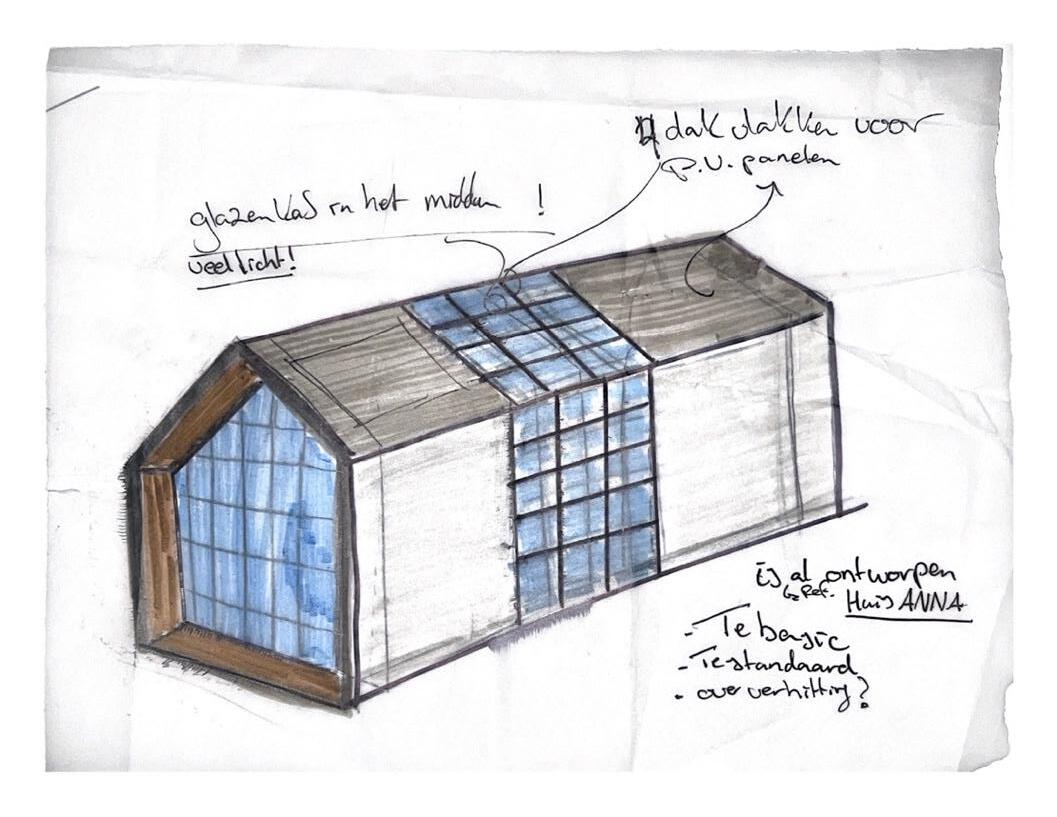 dak vlakken voor
P.V. panelen
glazen kas in het midden !
veel licht!
Is al ontworpen
Ref. Huis ANNA
- Te basic
- Te standaard
- oververhitting?